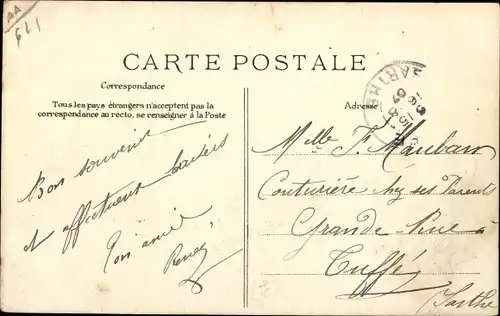 AA
621
CARTE POSTALE
Correspondance
Tous les pays étrangers n'acceptent pas la
correspondance au recto, se renseigner à la Poste
Adresse
SARTHE
Bon souvenir
et affectueux baisers
Ton amie
Renée
Melle F. Maubars
Couturière chez ses Parents
Grande Rue à
Tuffé
Sarthe